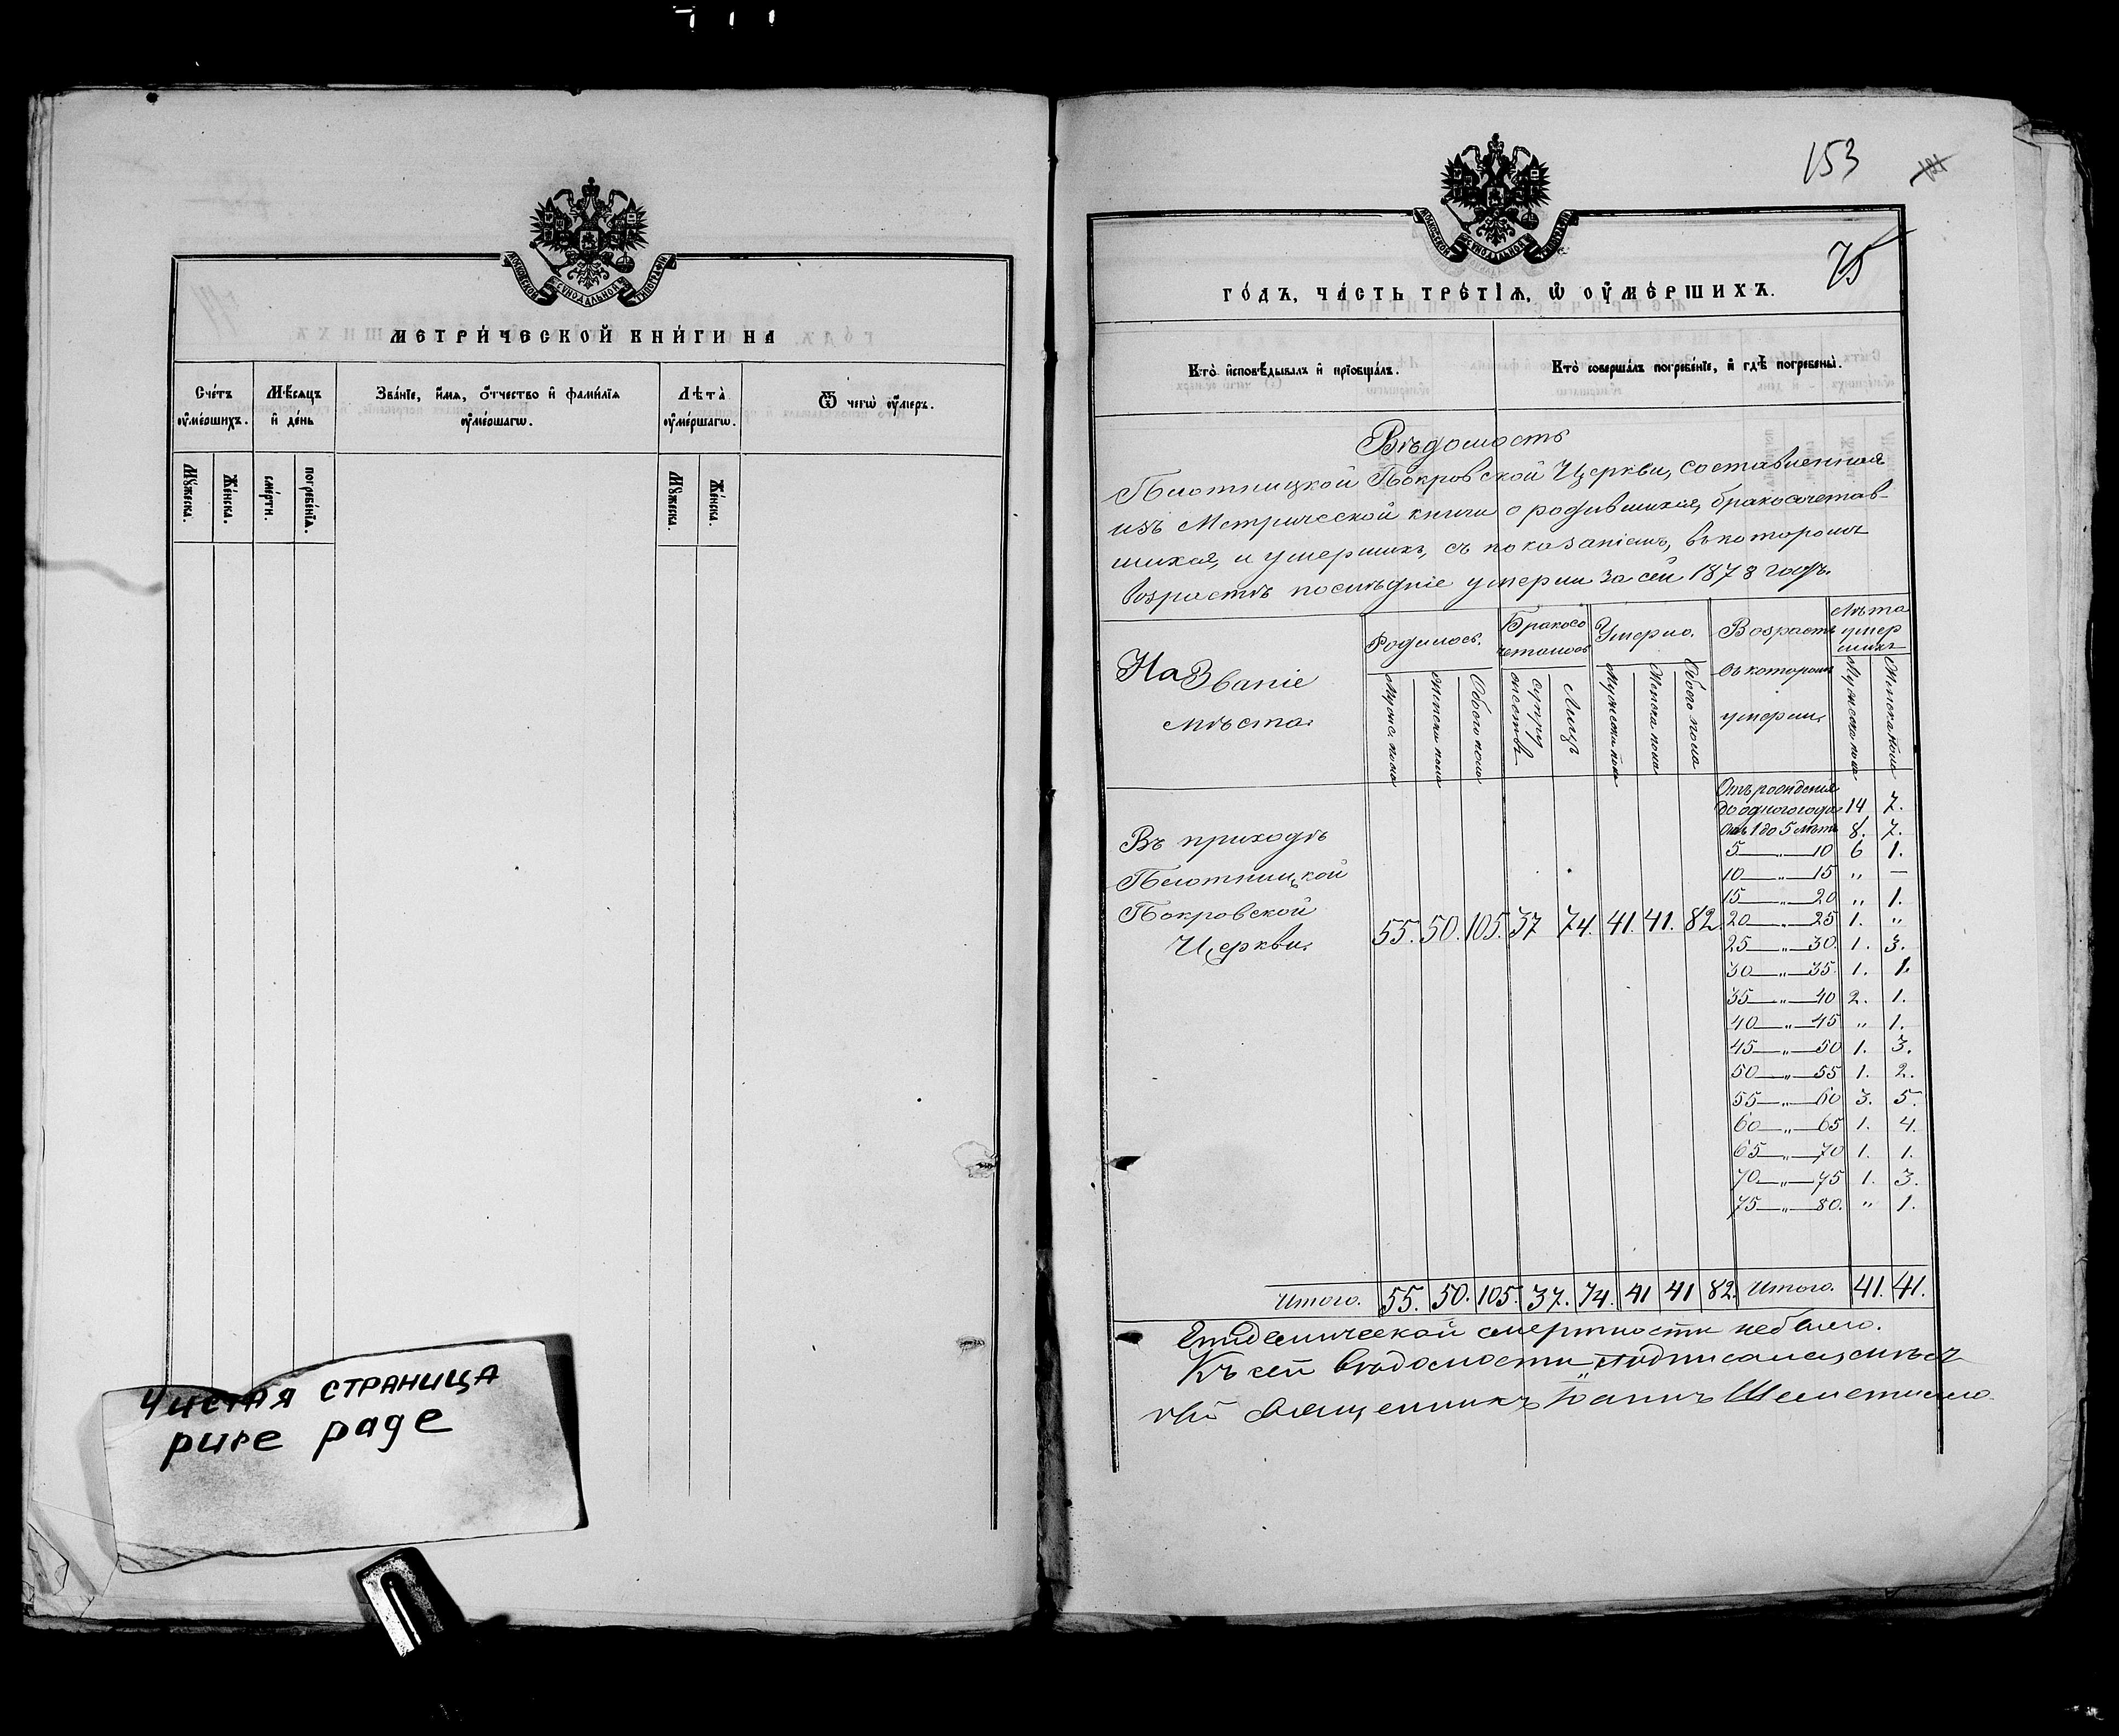 МОСКОВСКОЙ СѴНОДАЛЬНОЙ ТИПОГРАФІИ
МЕТРИ́ЧЕСКОЙ КНИ́ГИ НА
Сче́тъ ᲂу҆ме́ршихъ.
Мѣ́сѧцъ и҆ де́нь
Зва́нїе, и҆́мѧ, ѻ҆́тчество и҆ фами́лїѧ ᲂу҆ме́ршагѡ.
Лѣ̀та̀ ᲂу҆ме́ршагѡ.
Ѿ чегѡ̀ ᲂу҆́меръ.
Мꙋ́жеска.
Же́нска.
сме́рти.
погребе́нїѧ.
Мꙋ́жеска.
Же́нска.
Чистая страница
pure page
153
121
МОСКОВСКОЙ СѴНОДАЛЬНОЙ ТИПОГРАФІИ
75
ГО́ДЪ, ЧА́СТЬ ТРЕ́ТІѦ, Ѡ҆ ОУ҆МЕ́РШИХЪ.
Кто̀ и҆сповѣ́дывалъ и҆ прїѻбща́лъ.
Кто̀ соверша́лъ погребе́нїе, и҆ гдѣ̀ погребены̀.
Вѣдомость
Плотницкой Покровской Церкви, составленная
изъ Метрической книги о родившихся, бракосочетав-
шихся, и умершихъ, съ показаніемъ, въ которомъ
возрастѣ послѣдніе умерли за сей 1878 годъ.
Названіе мѣста.
Родилось.
Бракосо четалось
Умерло.
Возрастъ въ которомъ умерли.
Лѣта умер шихъ
Мужс. пола
Женска пола
Обоего пола
супру жествъ
Лицъ
Мужеска пола
Женска пола
Обоего пола
Мужеска пола
Женска пола
Въ приходѣ
Плотницкой
Покровской
Церкви.
55. 50. 105. 37 74. 41. 41. 82.
Отъ рожденія
до одного года 14 7.
Отъ 1 до 5 лѣтъ 8. 7.
5 — „ — 10 6 1.
10 — „ — 15 „ —
15 — „ — 20 „ 1.
20 — „ — 25 1. „
25 — „ — 30. 1. 3.
30 — „ — 35. 1. 1.
35 — „ — 40 2. 1.
40 — „ — 45 „ 1.
45 — „ — 50 1. 3.
50 — „ — 55 1. 2.
55 — „ — 60 3. 5.
60 — „ — 65 1. 4.
65 — „ — 70 1. 1.
70 — „ — 75 1. 3.
75 — „ — 80. „ 1.
Итого. 55. 50. 105. 37. 74. 41 41 82. Итого. 41. 41.
Епидемической смертности небыло.
Къ сей вѣдомости подписался, мѣст
ный священникъ Іоаннъ